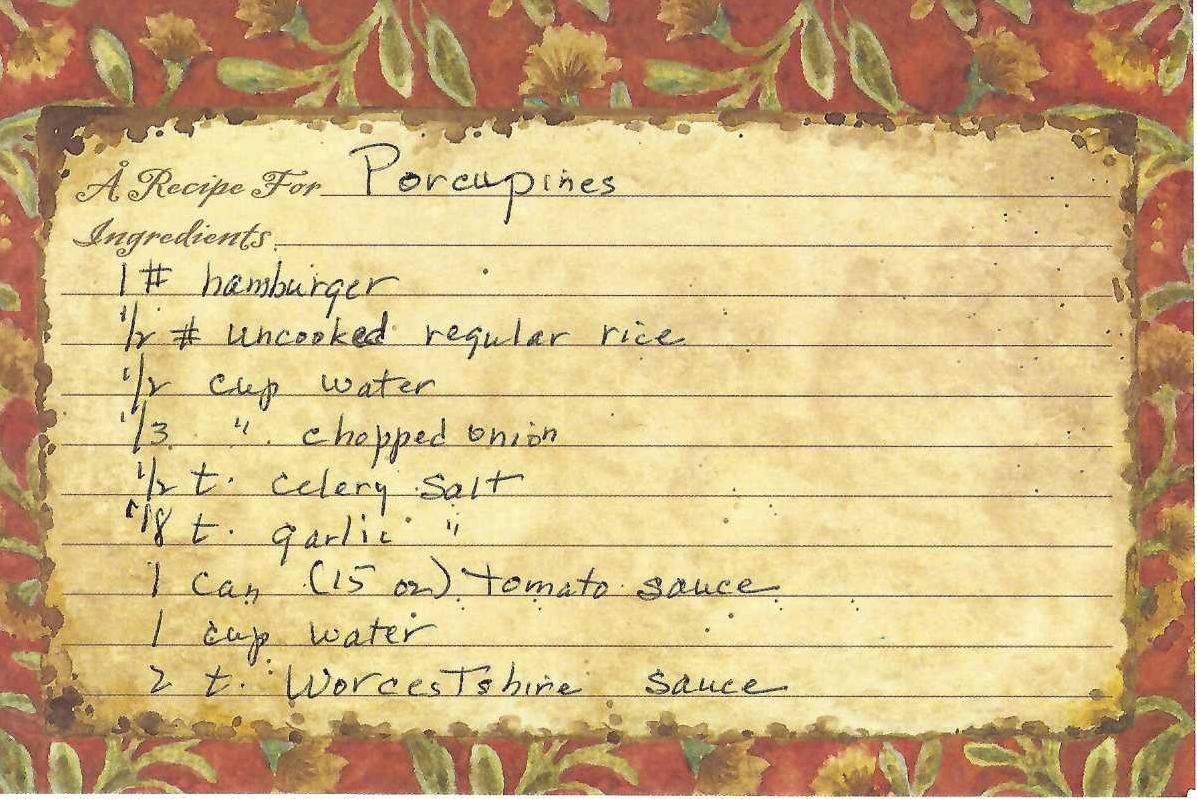 A Recipe For Porcupines
Ingredients
1 # hamburger
1/2 # uncooked regular rice
1/2 cup water
1/3 " chopped onion
1/2 t. celery salt
1/8 t. garlic "
1 can (15 oz) tomato sauce
1 cup water
2 t. Worcestshire sauce